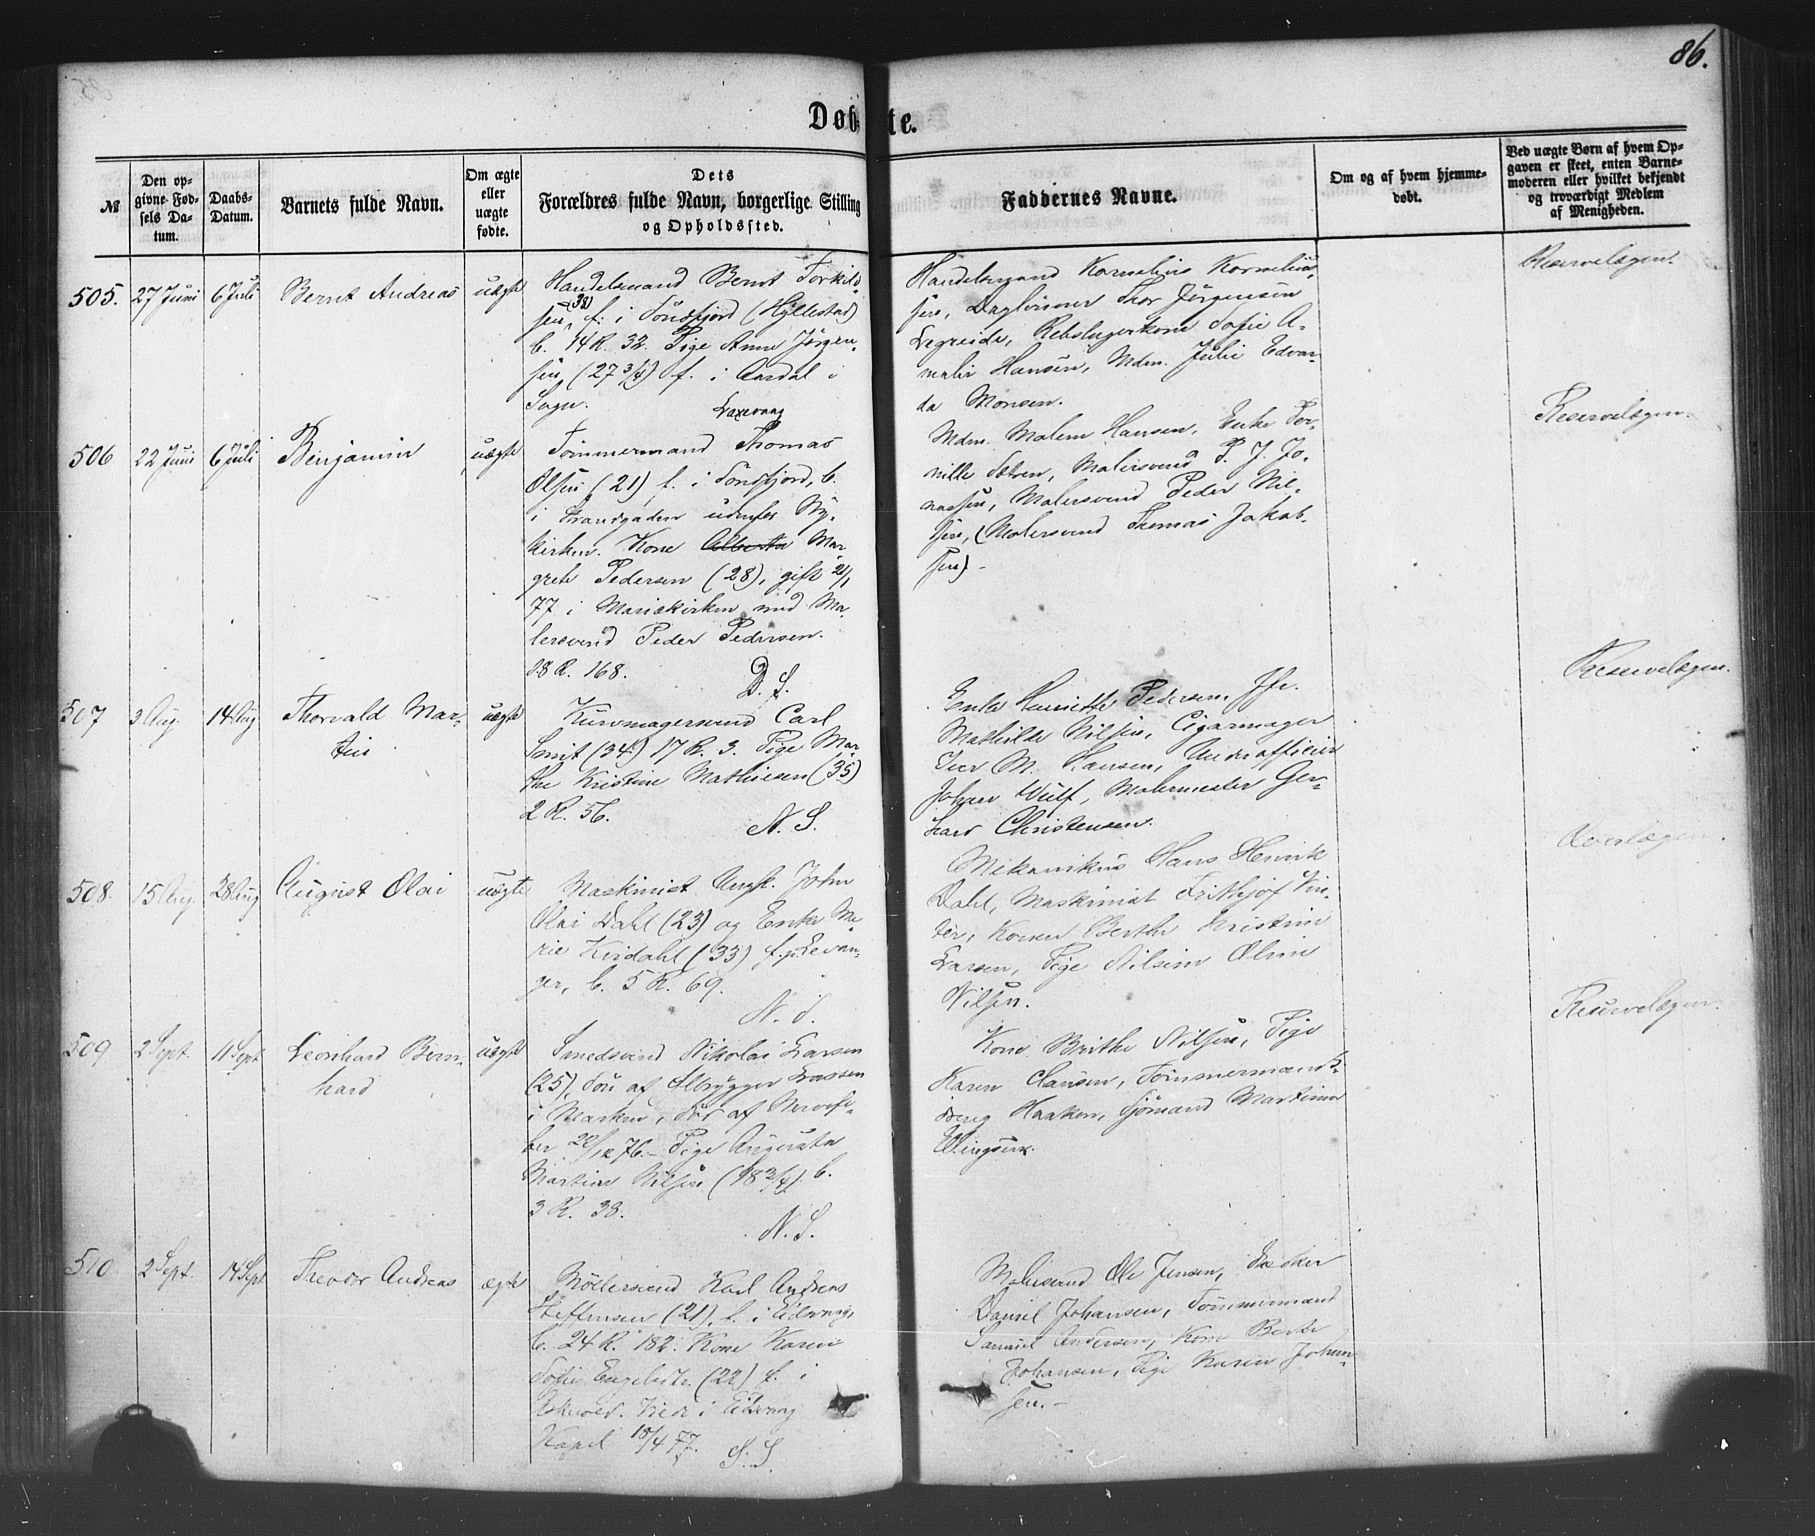 86.
Døbte.
№
Den opgivne Fødsels Datum.
Daabs-Datum.
Barnets fulde Navn.
Om ægte eller uægte fødte.
Dets Forældres fulde Navn, borgerlige Stilling og Opholdssted.
Faddernes Navne.
Om og af hvem hjemmedøbt.
Ved uægte Børn af hvem Opgaven er skeet, enten Barnemoderen eller hvilket bekjendt og troværdigt Medlem af Menigheden.
505. 27 Juni 6 Juli Bernt Andreas uægte
Handelsmand Bernt Torkild-
sen (38) f. i Søndfjord (Hyllestad)
b. 14 R. 32. Pige Anne Jørgen-
sen, (27 3/4) f. i Aardal i
Sogn.
Handelsmand Kornelius Kornelius-
sen, Dagleiener Thor Jørgensen
Degreide, Rebslagerkone Sofie A-
malie Hansen, Mdm. Julie Edvar-
da Monsen.
Reservelægen.
506 22 Juni 6 Juli Benjamin uægte
Laxevaag
Tømmermand Thomas
Olsen (21) f. i Søndfjord, b.
i Strandgaden udenfor Ny-
kirken. Kone Alberta Mar-
grete Pedersen (28), gift 21/1
77 i Mariækirken med Ma-
lersvend Peder Pedersen.
18 R. 168. D. S.
Mdm. Malene Hansen, Enke Per-
nille Sætren, Malersvend P. J. Jo-
nassen, Malersvend Peder Nil-
sen, (Malersvend Thomas Jakob-
sen) -
Reservelægen.
507 3 Aug. 14 Aug Thorvald Mar-
tin
uægte
Kurvmagersvend Carl
Smit (34) 17 R. 3. Pige Mar-
the Kristine Mathiesen (35)
2 R. 56.
N. S.
Enke Henriette Pedersen, Jfr.
Mathilde Nilsen, Cigarmager
Iver M. Hansen, Underofficier
Johan Wulf, Malermester Ger-
hard Christensen.
Reservelægen.
508. 15 Aug. 28 Aug August Olai uægte
Maskinist Ungk. John
Olai Dahl (23) og Enke Ma-
rie Kirdahl (33) f. p. Levan-
ger, b. 5 R. 69.
N. S.
Mekanikus Hans Henrik
Dahl, Maskinist Frithjof Vin-
ter, Konen Berthe Kristine
Larsen, Pige Nilsine Oline
Nilsen.
Overlægen.
509. 2 Sept. 11 Sept Leonhard Bern-
hard
uægte
Smedsvend Nikolai Larsen
(25), Søn af Ølbrygger Larsen
i Marken, død af Nervefe-
ber 20/12 76. - Pige Augusta
Martine Nilsen (18 3/4) b.
3 R. 38.
N. S.
Kone Brithe Nilsen, Pige
Karen Hansen, Tømmermand
Haaken, Sjømand Martinus
Reservelægen.
510. 2 Sept. 14 Sept Theodor Andreas ægte
Møllersvend Karl Andreas
Steffensen (21), f. i Eidsvaag,
b. 24 R. 182. Kone Karen
Sofie Engelsdtr. (22) f. i
Askvold. Viede i Eidsvaag
Kapel 15/4 77. S. S.
Møllersvend Ole Jensen,
Daniel Johansen, Tømmermand
Samuel Andersen, Kone Berte
Johansen, Pige Karen Johan-
sen. -